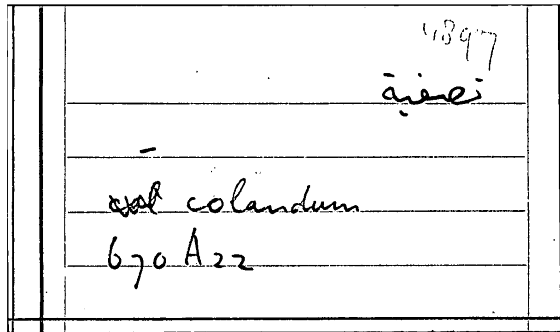 4897
تصفية
colandum
670 A 22